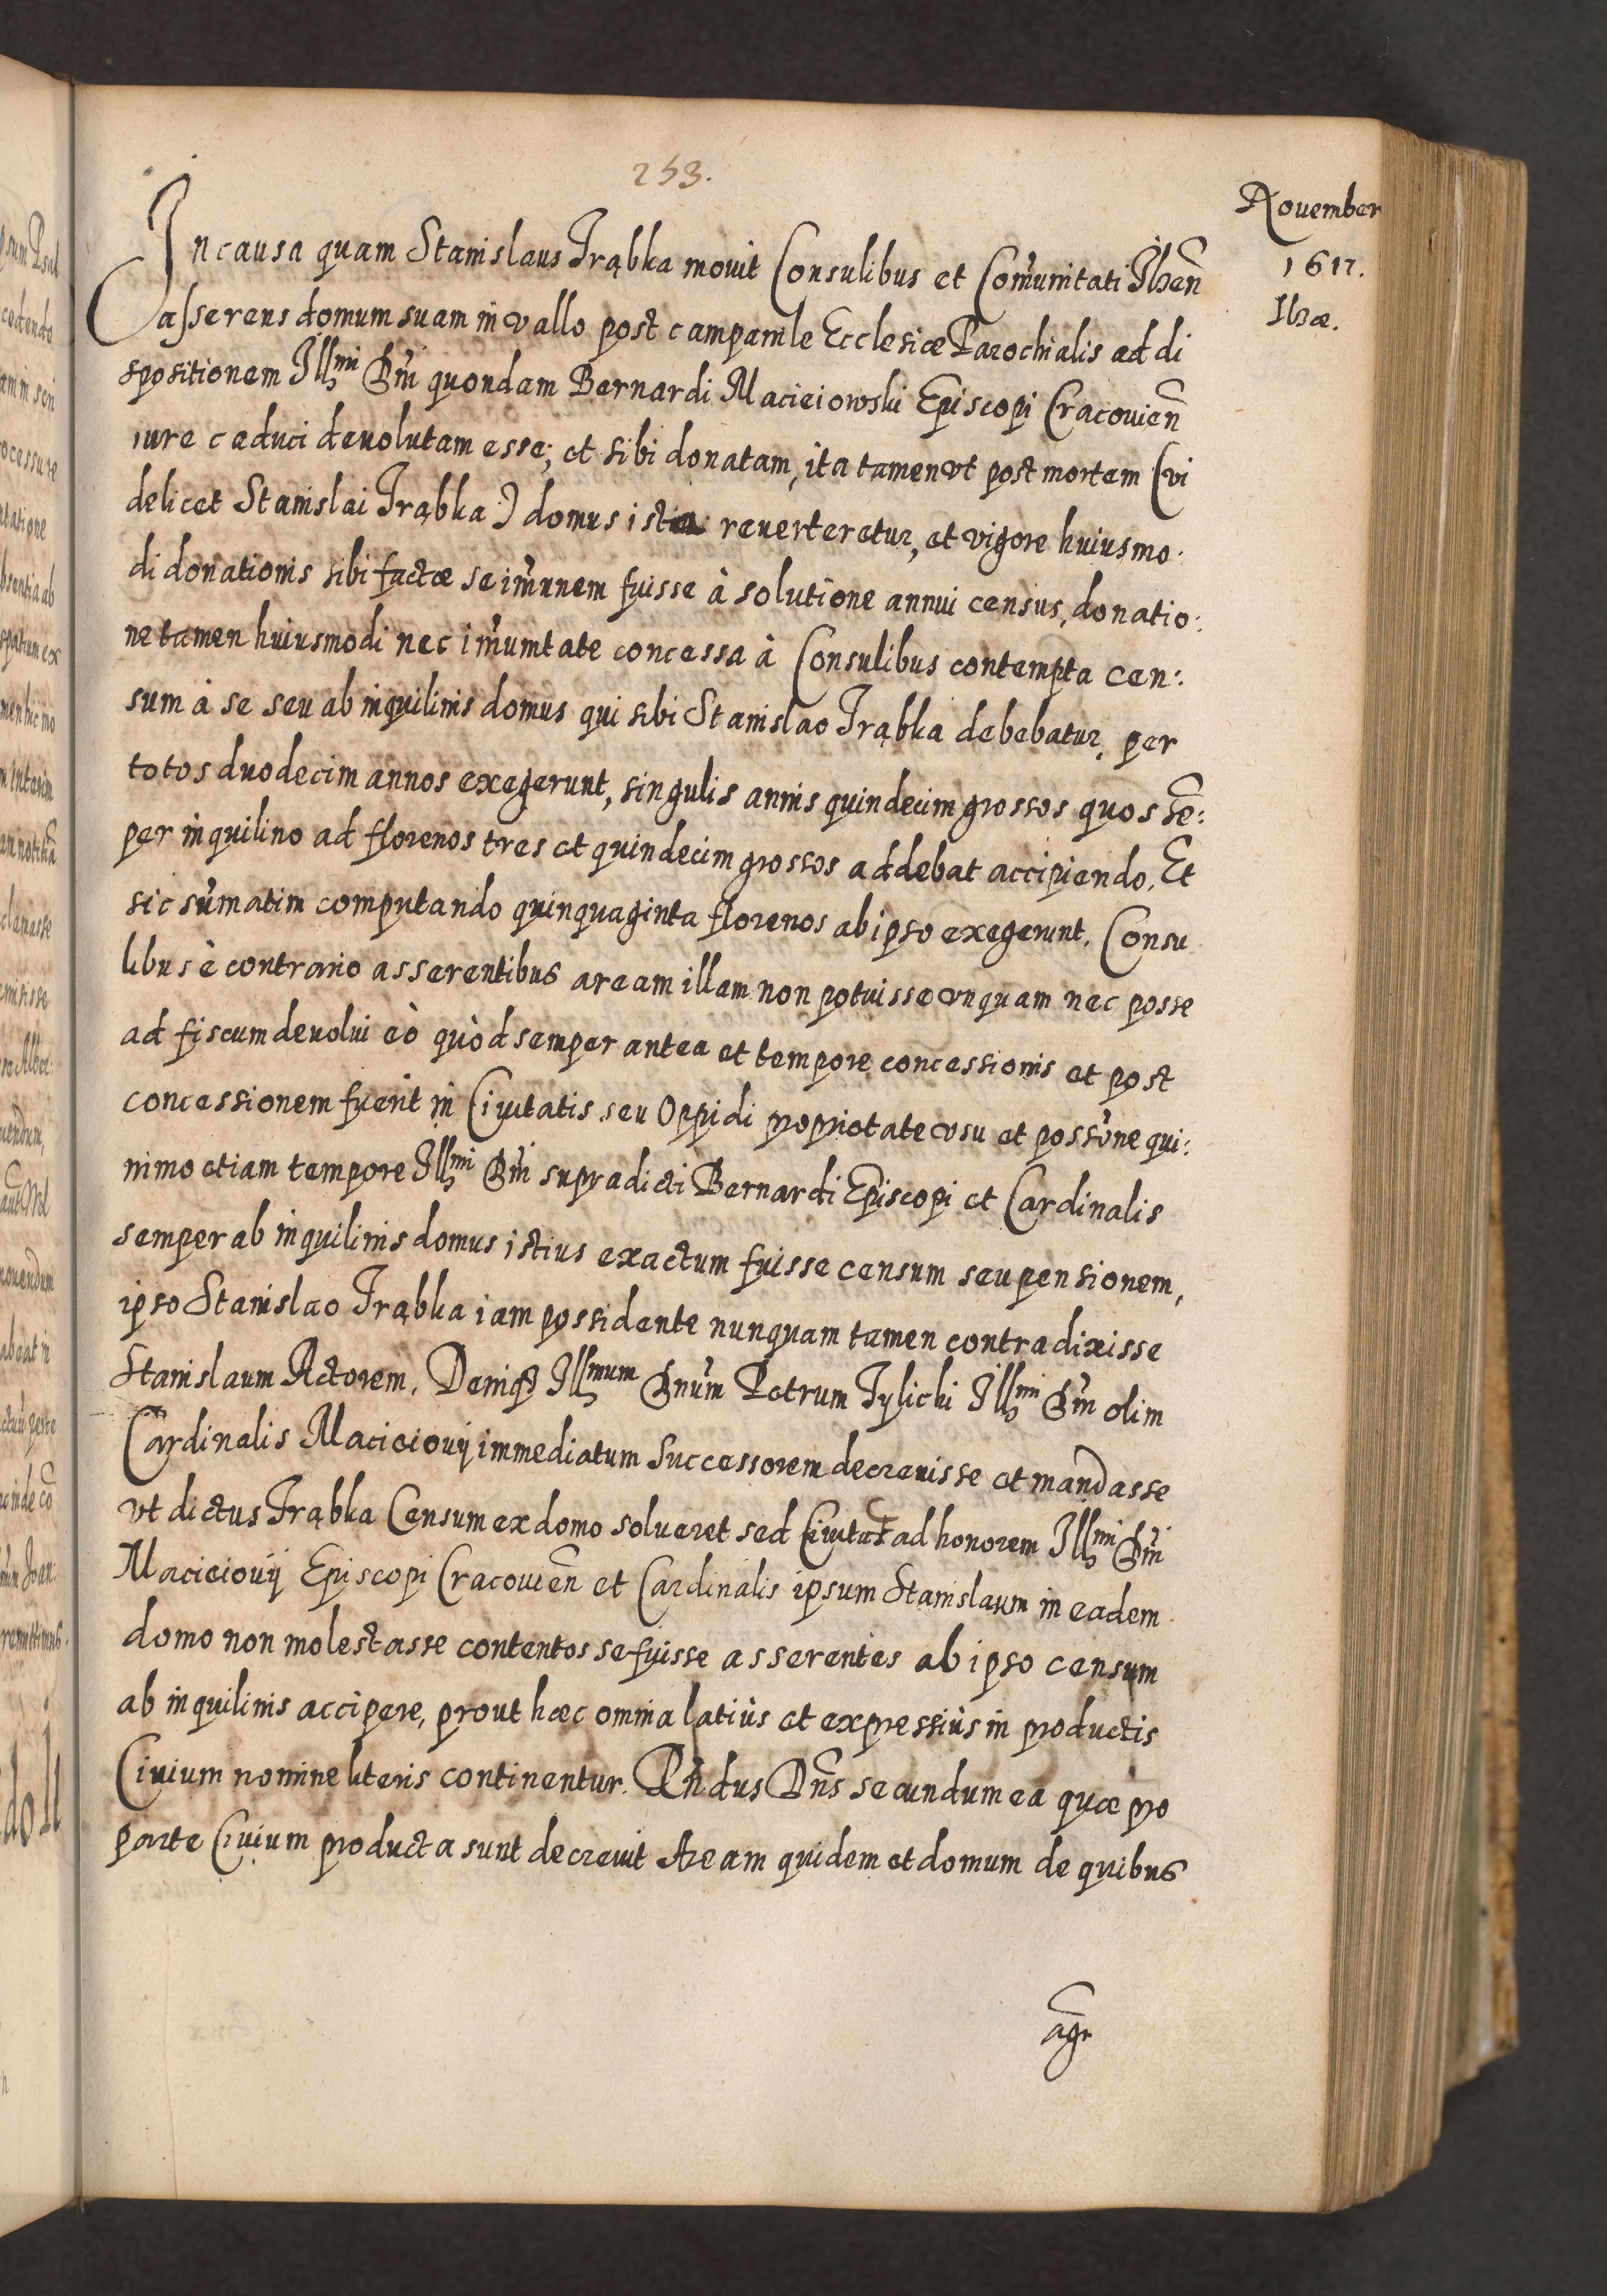 253.
November
1617.
Ilzæ.
In causa quam Stanislaus Trąbka mouit Consulibus et Com̃unitati Ilzen̄
asserens domum suam in vallo post campanile Ecclesiæ Parochialis ad di
spositionem Illmi Dñi quondam Bernardi Macieiowski Episcopi Cracouien̄
iure caduci deuolutam esse; et sibi donatam, ita tamen vt post mortem (vi
delicet Stanislai Trąbka:) domus ista reuerteretur, et vigore huiusmo:
di donationis sibi factæ se im̃unem fuisse à solutione annui census, donatio:
ne tamen huiusmodi nec im̃unitate concessa à Consulibus contempta cen:
sum à se seu ab inquilinis domus qui sibi Stanislao Trąbka debebatur, per
totos duodecim annos exegerunt, singulis annis quindecim grossos quos sẽ:
per inquilino ad florenos tres et quindecim grossos addebat accipiendo. Et
sic sum̃atim computando quinquaginta florenos ab ipso exegerunt. Consu
libus è contrario asserentibus aream illam non potuisse vnquam nec posse
ad fiscum deuolui eò quòd semper antea et tempore concessionis et post
concessionem fuerit in Ciuitatis seu Oppidi proprietate vsu et possõne qui:
nimo etiam tempore Illmi Dñi supradicti Bernardi Episcopi et Cardinalis
semper ab inquilinis domus istius exactum fuisse censum seu pensionem,
ipso Stanislao Trąbka iam possidente nunquam tamen contradixisse
Stanislaum Actorem. Deniqȝ Illmum Dnũm Petrum Tylicki Illmi Dñi olim
Cardinalis Macieiouij immediatum Successorem decreuisse et mandasse
vt dictus Trąbka Censum ex domo solueret sed Ciuitas ad honorem Illmi Dñi
Macieiouij Episcopi Cracouien̄ et Cardinalis ipsum Stanislaum in eadem
domo non molestasse contentos se fuisse asserentes ab ipso censum
ab inquilinis accipere, prout hæc omnia latiùs et expressiùs in productis
Ciuium nomine literis continentur. Rñdus Dñs secundum ea quæ pro
parte Ciuium producta sunt decreuit Aream quidem et domum de quibus
agr